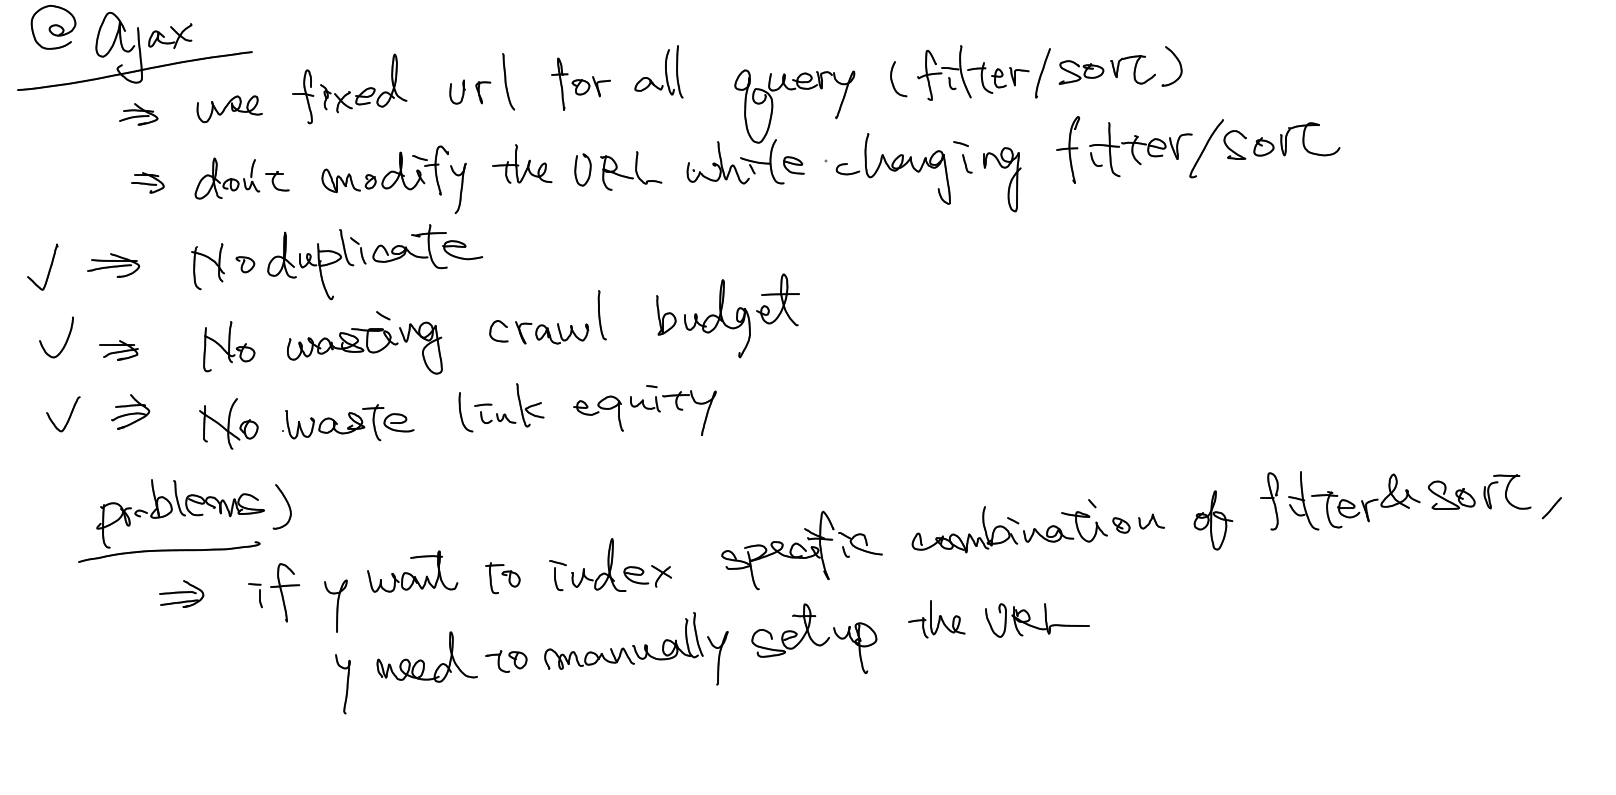 @ Ajax
⇒ use fixed url for all qquery (filter/sort)
⇒ don't modify the URL while changing filter/sort
✓ ⇒ No duplicate
✓ ⇒ No wasting crawl budget
✓ ⇒ No waste link equity
problems)
⇒ if y want to index specific combination of filter & sort,
y need to manually setup the URL